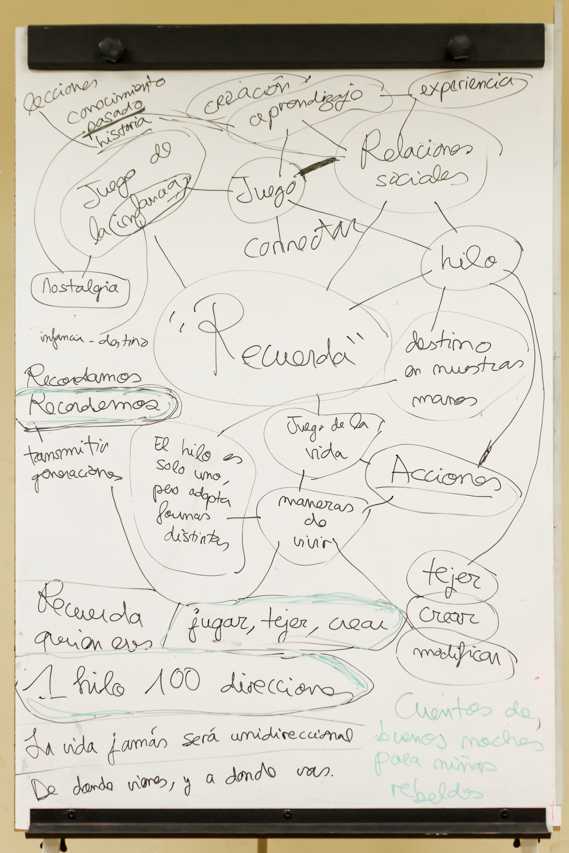 lecciones
conocimiento
pasado
historia
creación
aprendizaje
experiencia
Juego de
la infancia
Juego
Relaciones
sociales
connectar
hilo
Nostalgia
infancia - destino
"Recuerda"
destino
en nuestras
manos
Recordamos
Recordemos
transmitir
generaciones
El hilo es
solo uno,
pero adopta
formas
distintas
Juego de la
vida
maneras
de
vivir
Acciones
tejer
crear
modificar
Recuerda
quien eres
jugar, tejer, crear
1 hilo 100 direcciones
La vida jamás será unidireccional
De donde vienes, y a donde vas.
Cuentos de
buenas noches
para niñas
rebeldes